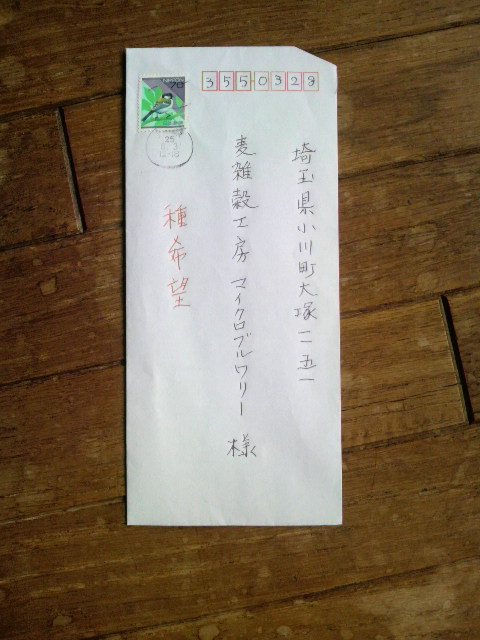 3550328
埼玉県小川町大塚一一五一
麦雑穀工房マイクロブルワリー 様
種希望
70